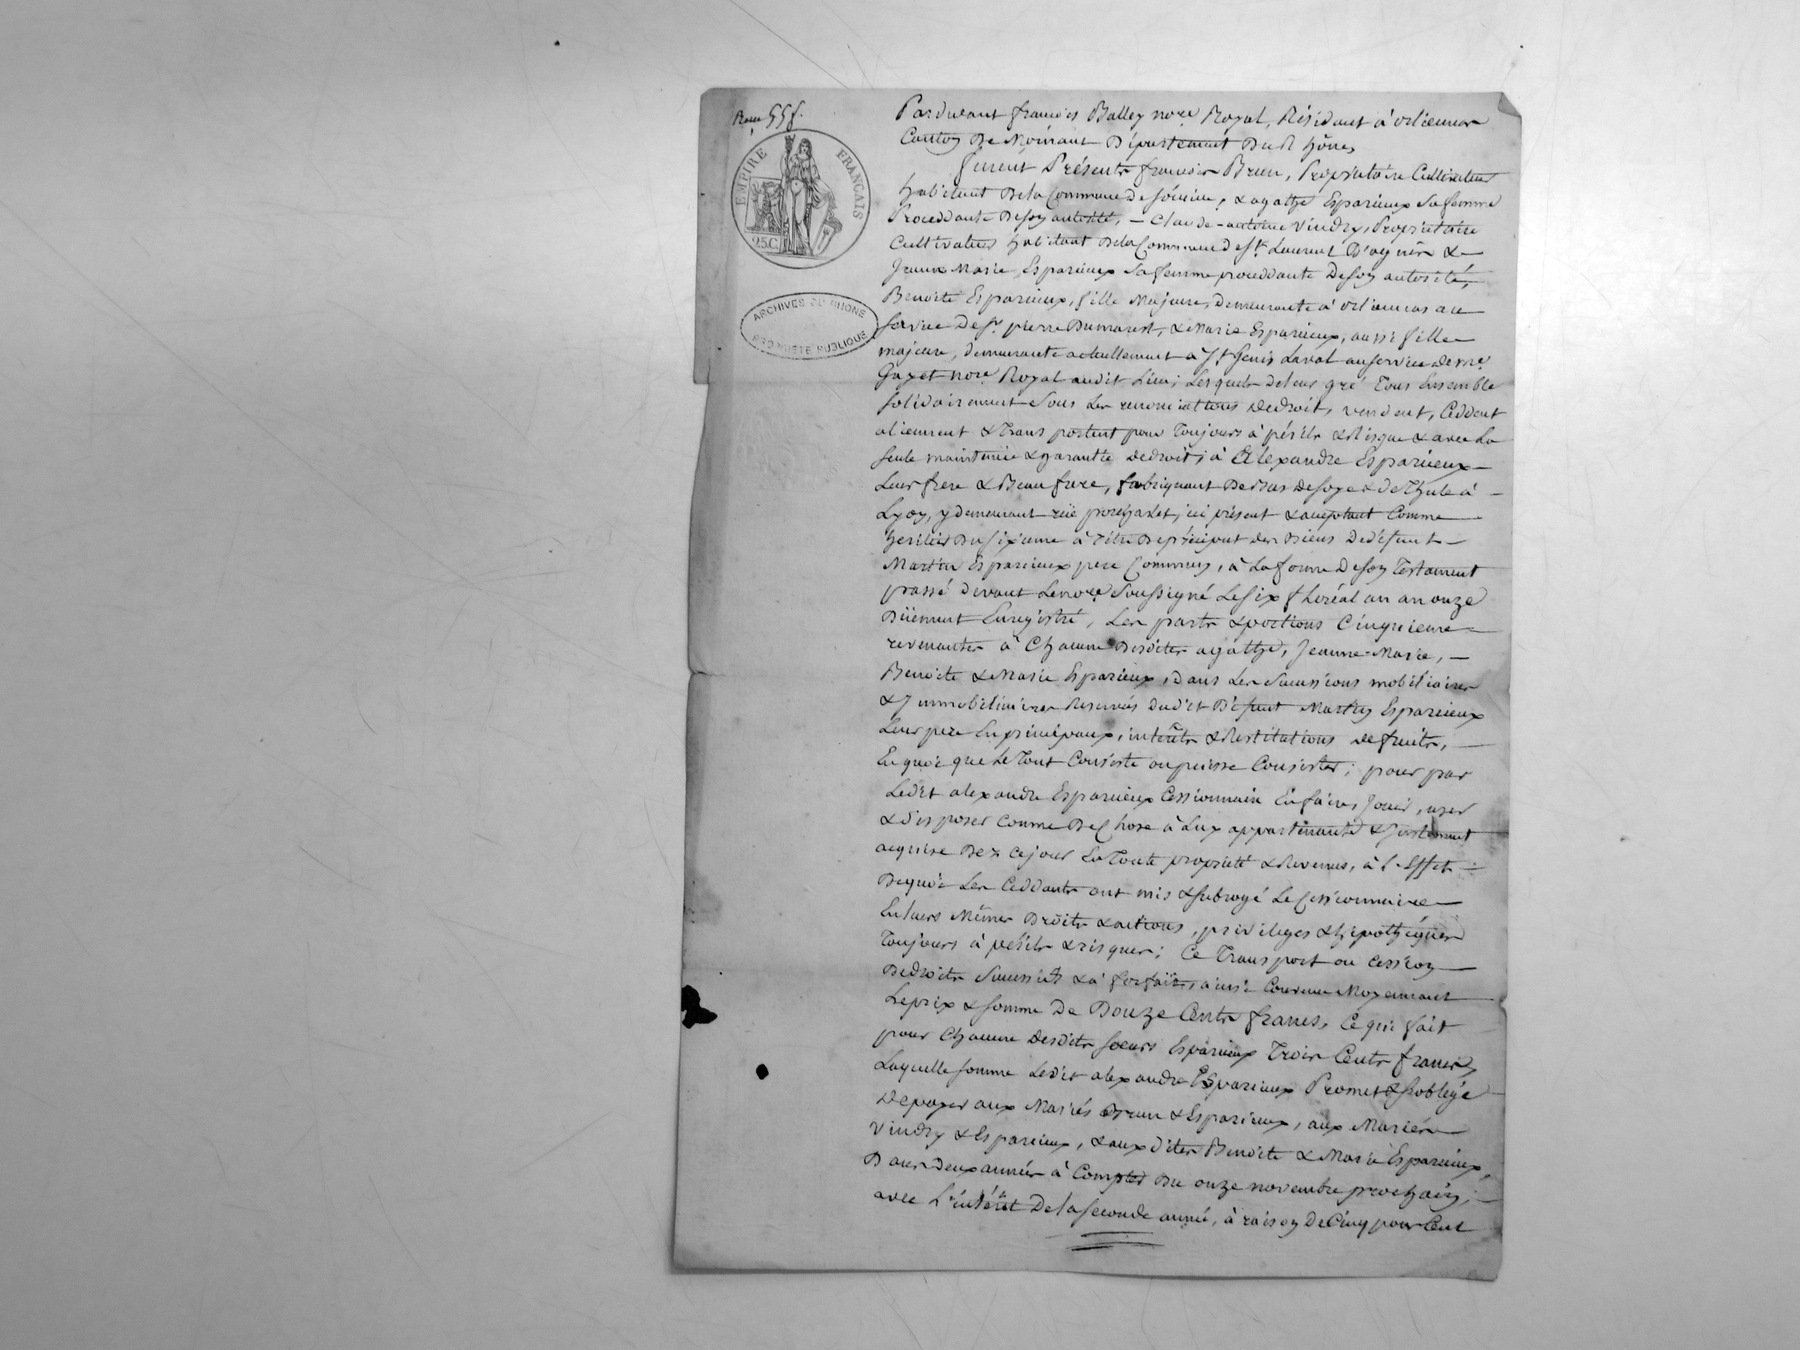 EMPIRE FRANÇAIS
25C
ARCHIVES DU RHONE
PROPRIETE PUBLIQUE
Pardevant françois Balley no.re Royal, Résidant à orlienas
Canton De Mornant Département Du Rhône,
furent Présents françois Brun, Propriétaire Cultivateur
habitant De la Commune De , & agathe Esparieux Sa femme
Proceddante De son autorité, – Claude-antoine Vindry, Propriétaire
Cultivateur habitant De la Commune De St. Laurent D'agnin &
Jeanne Marie Esparieux Sa femme proceddante De son autorité,
Benoite Esparieux, fille Majeure, Demeurante à orlienas au
Service De Sr. pierre Dumarest, & Marie Esparieux, aussi fille
majeure, demeurante actuellement à St Genis Laval au service de me.
Gayet no.re Royal audit Lieu; Lesquels de leur gré Tous Ensemble
Solidairement Sous les renonciations de droit, vendent, Ceddent
alienent & Transportent pour Toujours à périls & Risque & avec La
Seule maintenüe & garantie de droit, à Alexandre Esparieux
Leur frere & Beau frere, fabriquant De Bas De Soye & De Thule à
Lyon, y demeurant rüe , ici présent & acceptant Comme
heritier Du Sixieme à Titre De préciput des Biens De défunt
Martin Esparieux pere Commun, à La forme De Son Testament
passé devant Le no.re Soussigné Le Six floréal an onze
Düement Enregistré, Les parts & portions Cinquieme
revenantes à Chacune Desdites agathe, Jeanne-Marie, –
Benoite & Marie Esparieux, dans Les Successions mobiliaires
& Immobiliaires dudit Défunt Martin Esparieux
Leur pere En principaux, intérêts & Restitutions de fruits, –
En quoi que Le Tout Consiste ou puisse Consister; pour par
Ledit alexandre Esparieux Cessionnaire En faire, Jouir, user
& disposer comme De Chose à Luy appartenante & Justement
acquise Dez ce jour En Toute propriété & Revenus, à l'Effet
De quoi Les Ceddants ont mis & subrogé Le Cessionnaire
En leurs Mêmes Droits & actions, privileges & hipothèques
Toujours à périls & risques; Ce Transport ou Cession
De droits Successifs & à forfait, ainsi Convenu Moyennant
Le prix & Somme De Douze Cents francs, Ce qui fait
pour Chacune Desdites Soeurs Esparieux Trois Cents francs,
Laquelle Somme Ledit alexandre Esparieux Promet & S'oblige
De payer aux Mariés Brun & Esparieux, aux Mariés
Vindry & Esparieux, & aux dites Benoite & Marie Esparieux,
Dans Deux années à Compter Du onze novembre prochain;
avec L'intérêt De la Seconde année, à raison De Cinq pour Cent